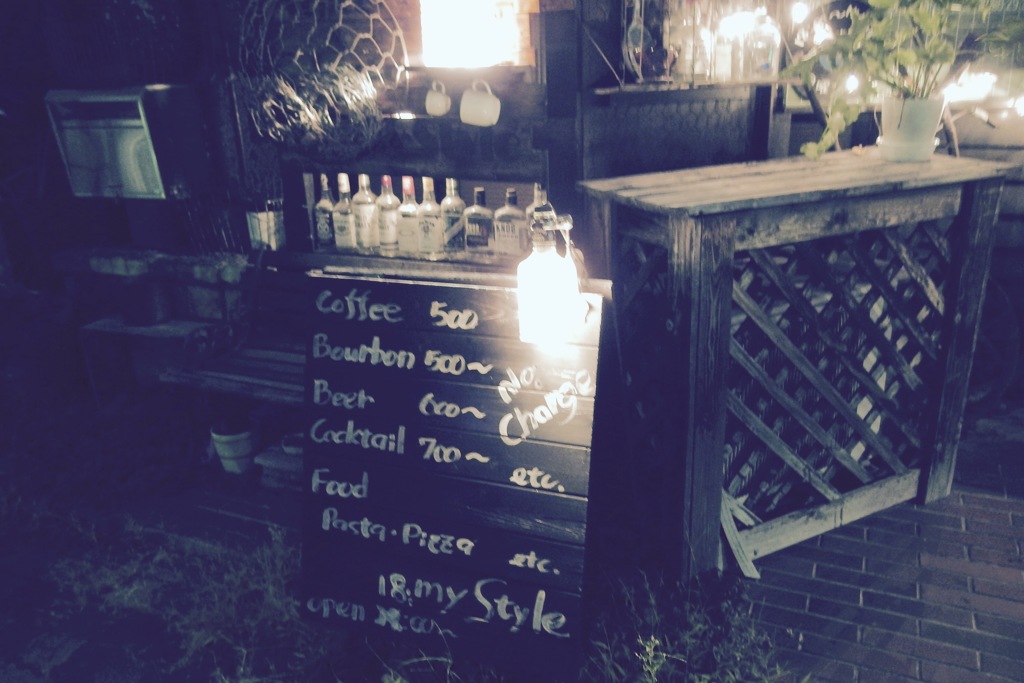 Coffee 500
Bourbon 500~
No. Charge
Beer 600~
Cocktail 700~ etc.
Food
Pasta・Pizza etc.
18. my Style
open :00~